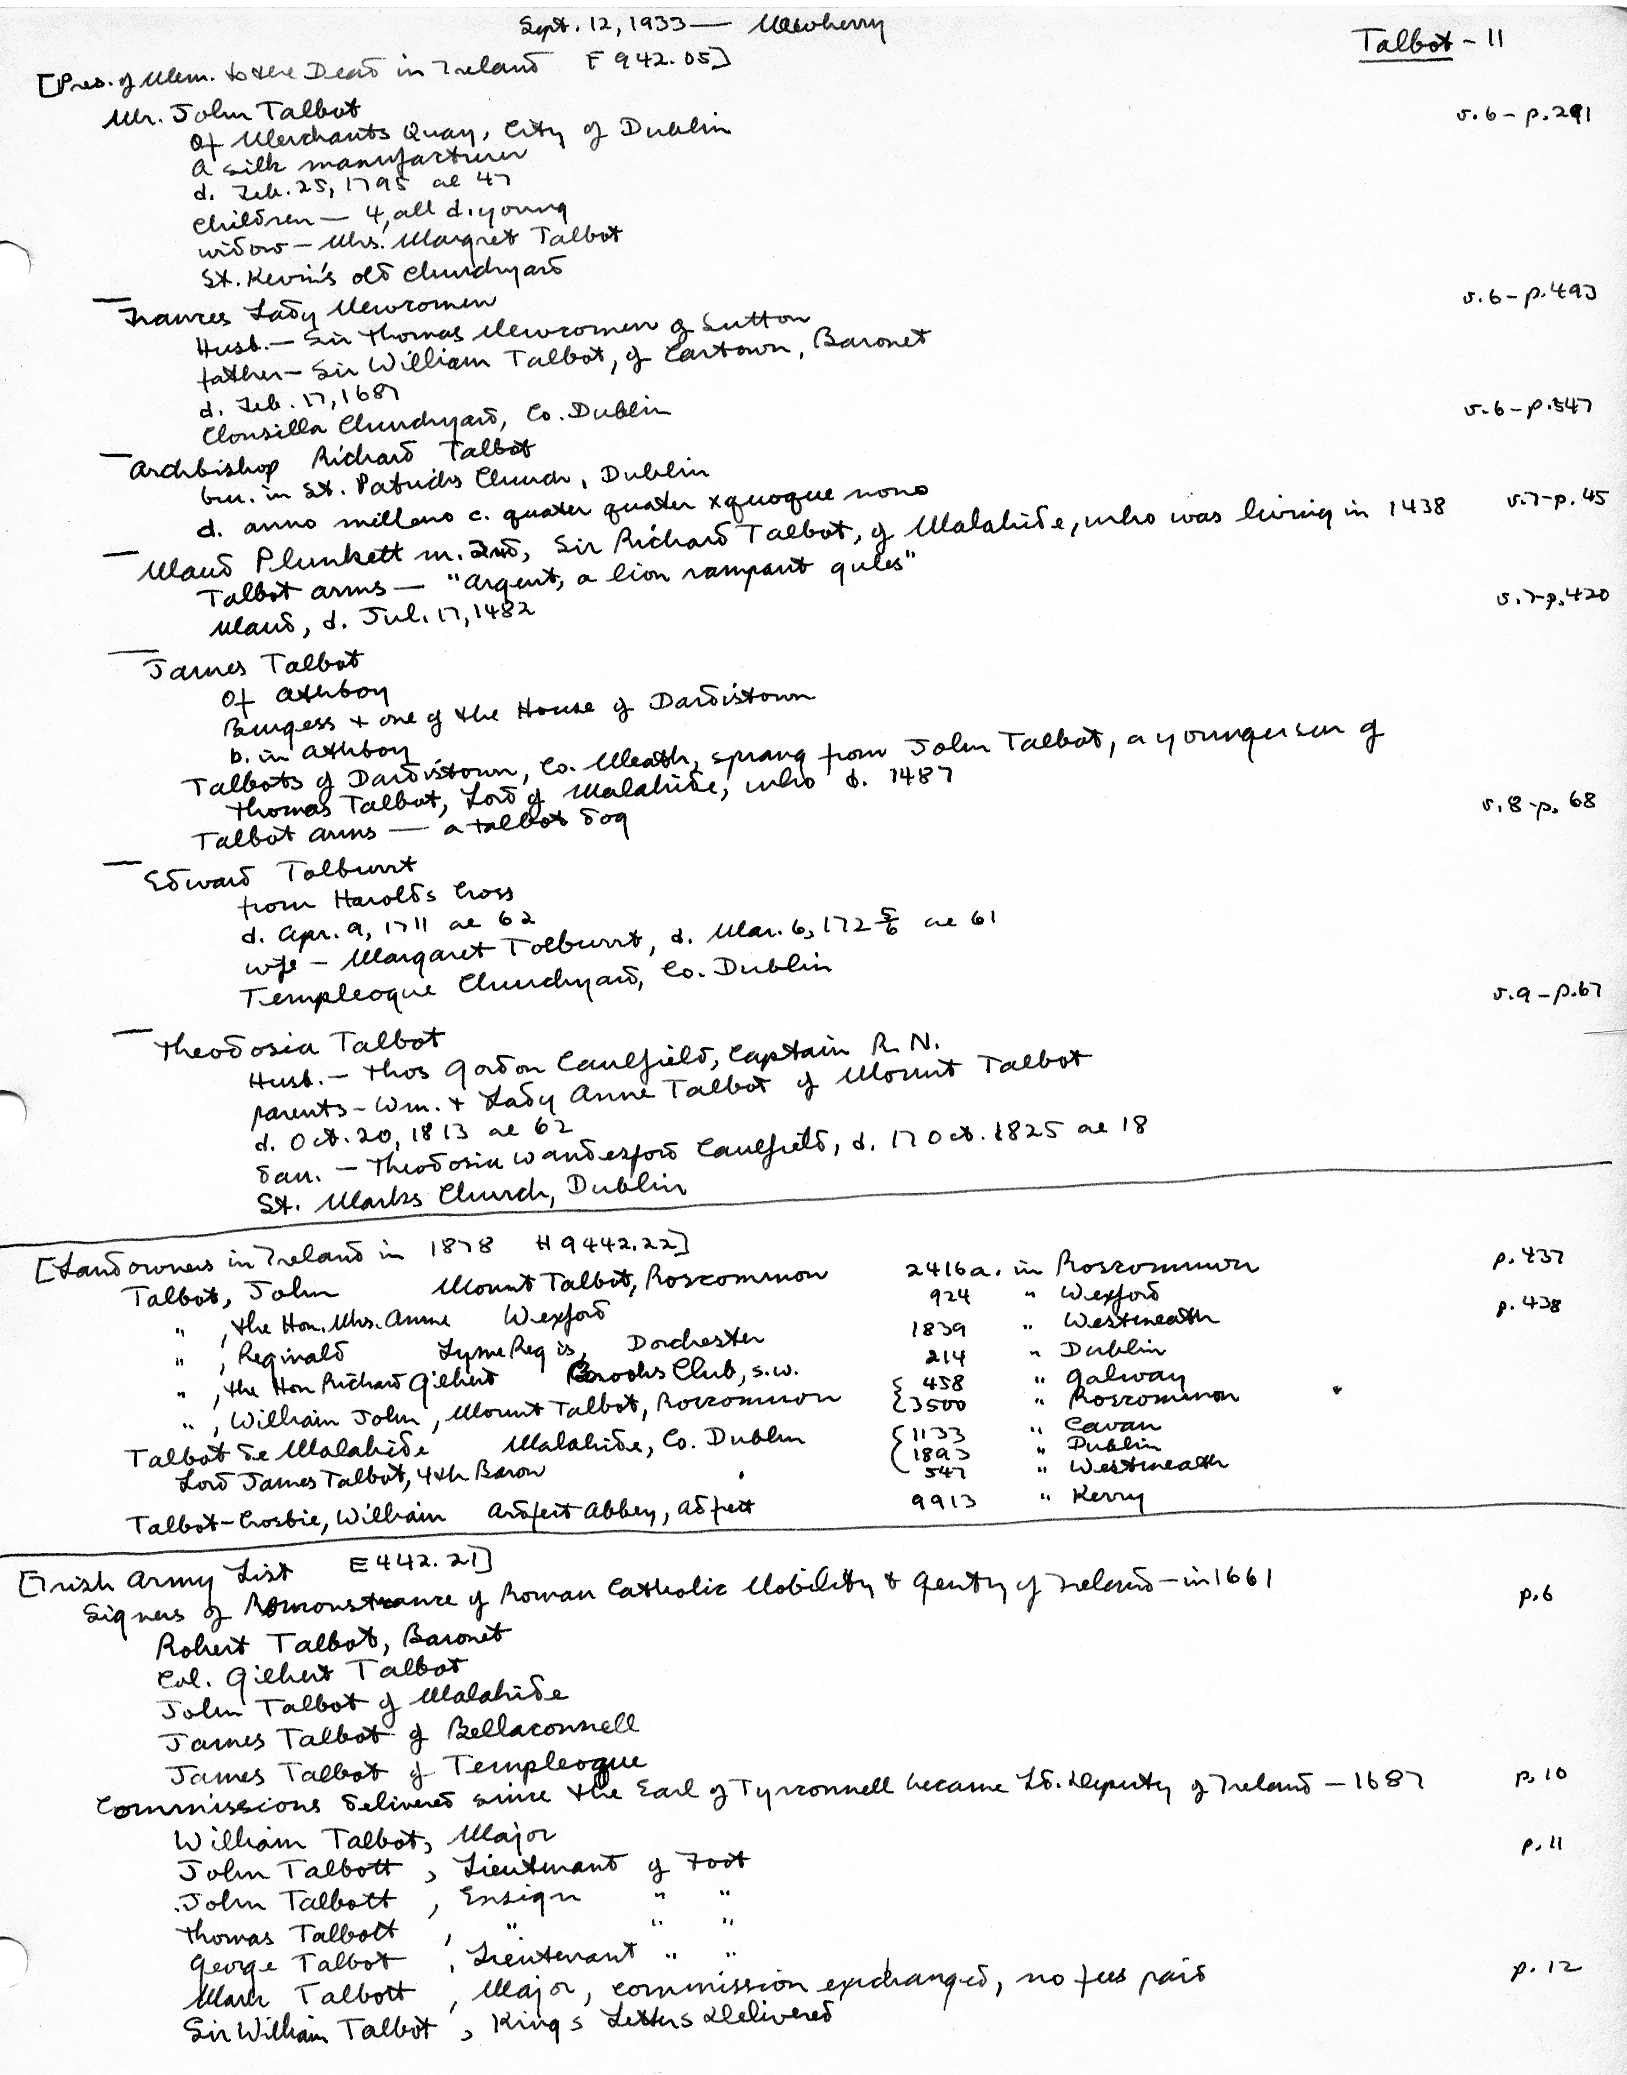 Sept. 12, 1933 — Newberry
Talbot - 11
[Pres. of Mem. to the Dead in Ireland F 942.05]
Mr. John Talbot v.6 - p.291
Of Merchants Quay, City of Dublin
a silk manufacturer
d. Feb. 25, 1795 ae 47
children — 4, all d. young
widow — Mrs. Margret Talbot
St. Kevin's old Churchyard
Frances Lady Newcomen v.6 - p.493
Husb. — Sir Thomas Newcomen of Sutton
father — Sir William Talbot, of Cartown, Baronet
d. Feb. 17, 1687
Clonsilla Churchyard, Co. Dublin
Archbishop Richard Talbot v.6 - p.547
bur. in St. Patricks Church, Dublin
d. anno milleno c. quater quater x quoque nono
Maud Plunkett m. 2nd, Sir Richard Talbot, of Malahide, who was living in 1438 v.7 - p. 45
Talbot arms — "argent, a lion rampant gules"
Maud, d. Jul. 17, 1482
James Talbot v.7 - p.420
Of Athboy
Burgess + one of the House of Dardistown
b. in Athboy
Talbots of Dardistown, Co. Meath, sprang from John Talbot, a younger son of
Thomas Talbot, Lord of Malahide, who d. 1487
Talbot arms — a talbot dog
Edward Tolburrt v.8 - p. 68
from Harolds Cross
d. Apr. 9, 1711 ae 62
wife — Margaret Tolburrt, d. Mar. 6, 172 5/6 ae 61
Templeogue Churchyard, Co. Dublin
Theodosia Talbot v.9 - p.67
Husb. — Thos Gordon Caulfield, Captain R.N.
parents — Wm. + Lady Anne Talbot of Mount Talbot
d. Oct. 20, 1813 ae 62
dau. — Theodosia Wandesford Caulfield, d. 17 Oct. 1825 ae 18
St. Marks Church, Dublin
[Landowners in Ireland in 1878 H 9442.22]
Talbot, John Mount Talbot, Roscommon 2416a. in Roscommon p.437
" , the Hon. Mrs. Anne Wexford 924 " Wexford p.438
" , Reginald Lyme Regis, Dorchester 1839 " Westmeath
" , the Hon Richard Gilbert Brooks Club, s.w. 214 " Dublin
" , William John, Mount Talbot, Roscommon { 458 " Galway
{ 3500 " Roscommon
Talbot de Malahide Malahide, Co. Dublin { 1133 " Cavan
Lord James Talbot, 4th Baron 1893 " Dublin
547 " Westmeath
Talbot-Crosbie, William Ardfert Abbey, Adfert 9913 " Kerry
[Irish Army List E 442.21]
Signers of Remonstrance of Roman Catholic Nobility + Gentry of Ireland — in 1661 p.6
Robert Talbot, Baronet
Col. Gilbert Talbot
John Talbot of Malahide
James Talbot of Bellaconnell
James Talbot of Templeogue
Commissions delivered since the Earl of Tyrconnell became Ld. Deputy of Ireland — 1687 p.10
William Talbot, Major
John Talbott , Lieutenant of Foot p.11
John Talbott , Ensign " "
Thomas Talbott , " " "
George Talbot , Lieutenant " "
Mark Talbott , Major, commission exchanged, no fees paid p.12
Sir William Talbot , Kings Letters Delivered